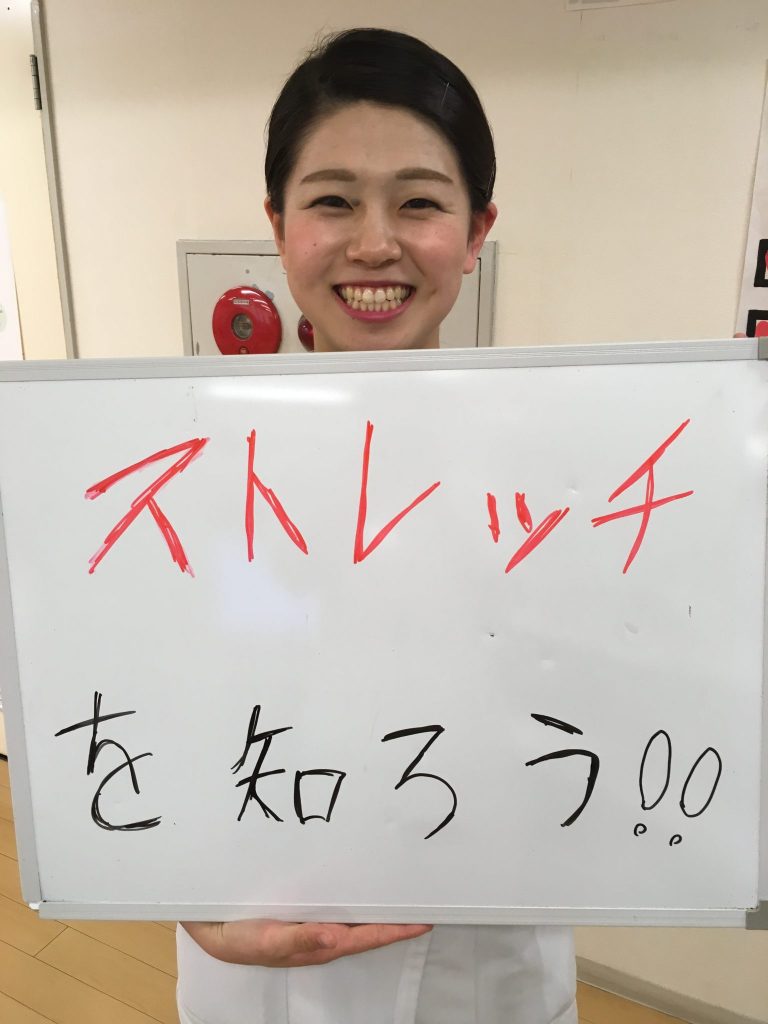 ストレッチ
を知ろう!!